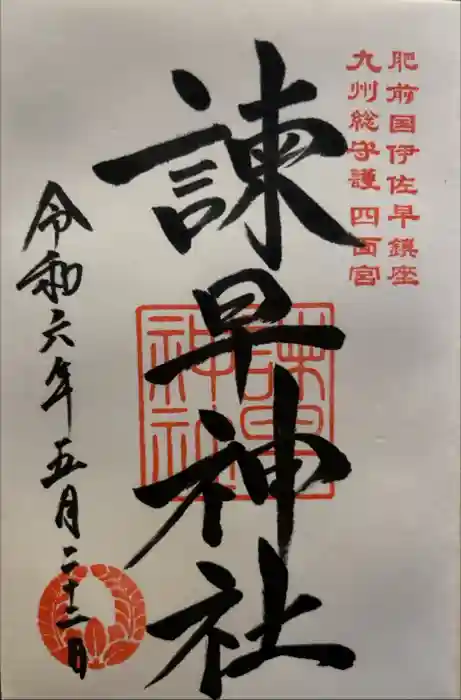 肥前国伊佐早鎮座
九州総守護 四面宮
諫早神社
諫早神社
令和六年五月二十二日